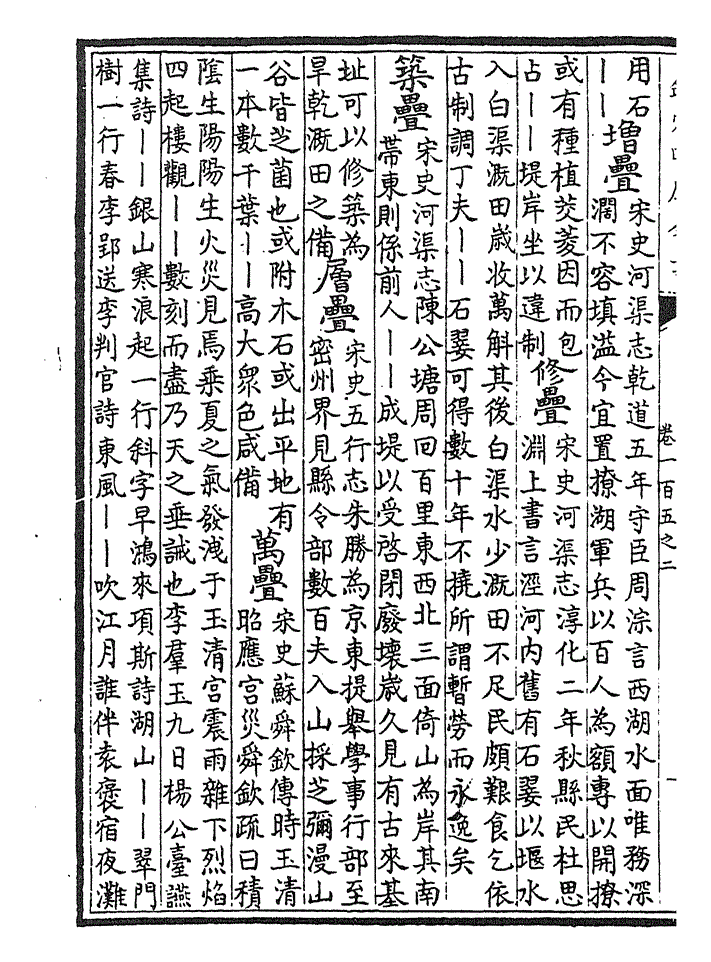 卷一百五之二
用石
丨丨
増疊
宋史河渠志乾道五年守臣周淙言西湖水面唯務深
濶不容填溢今宜置撩湖軍兵以百人為額專以開撩
或有種植茭菱因而包
占丨丨堤岸坐以違制
修疊
宋史河渠志淳化二年秋縣民杜思
淵上書言涇河内舊有石翣以堰水
入白渠溉田歲收萬斛其後白渠水少溉田不足民頗艱食乞依
古制調丁夫丨丨石翣可得數十年不撓所謂暫勞而永逸矣
築疊
宋史河渠志陳公塘周回百里東西北三面倚山為岸其南
帶東則係前人丨丨成堤以受啓閉廢壞歲久見有古來基
址可以修築為
旱乾溉田之備
層疊
宋史五行志朱勝為京東提舉學事行部至
密州界見縣令部數百夫入山採芝彌漫山
谷皆芝菌也或附木石或出平地有
一本數千葉丨丨高大衆色咸備
萬疊
宋史蘇舜欽傳時玉清
昭應宫災舜欽疏曰積
陰生陽陽生火災見焉乘夏之氣發洩于玉清宫震雨雜下烈焰
四起樓觀丨丨數刻而盡乃天之垂誡也李羣玉九日楊公臺讌
集詩丨丨銀山寒浪起一行斜字早鴻來項斯詩湖山丨丨翠門
樹一行春李郢送李判官詩東風丨丨吹江月誰伴袁褒宿夜灘